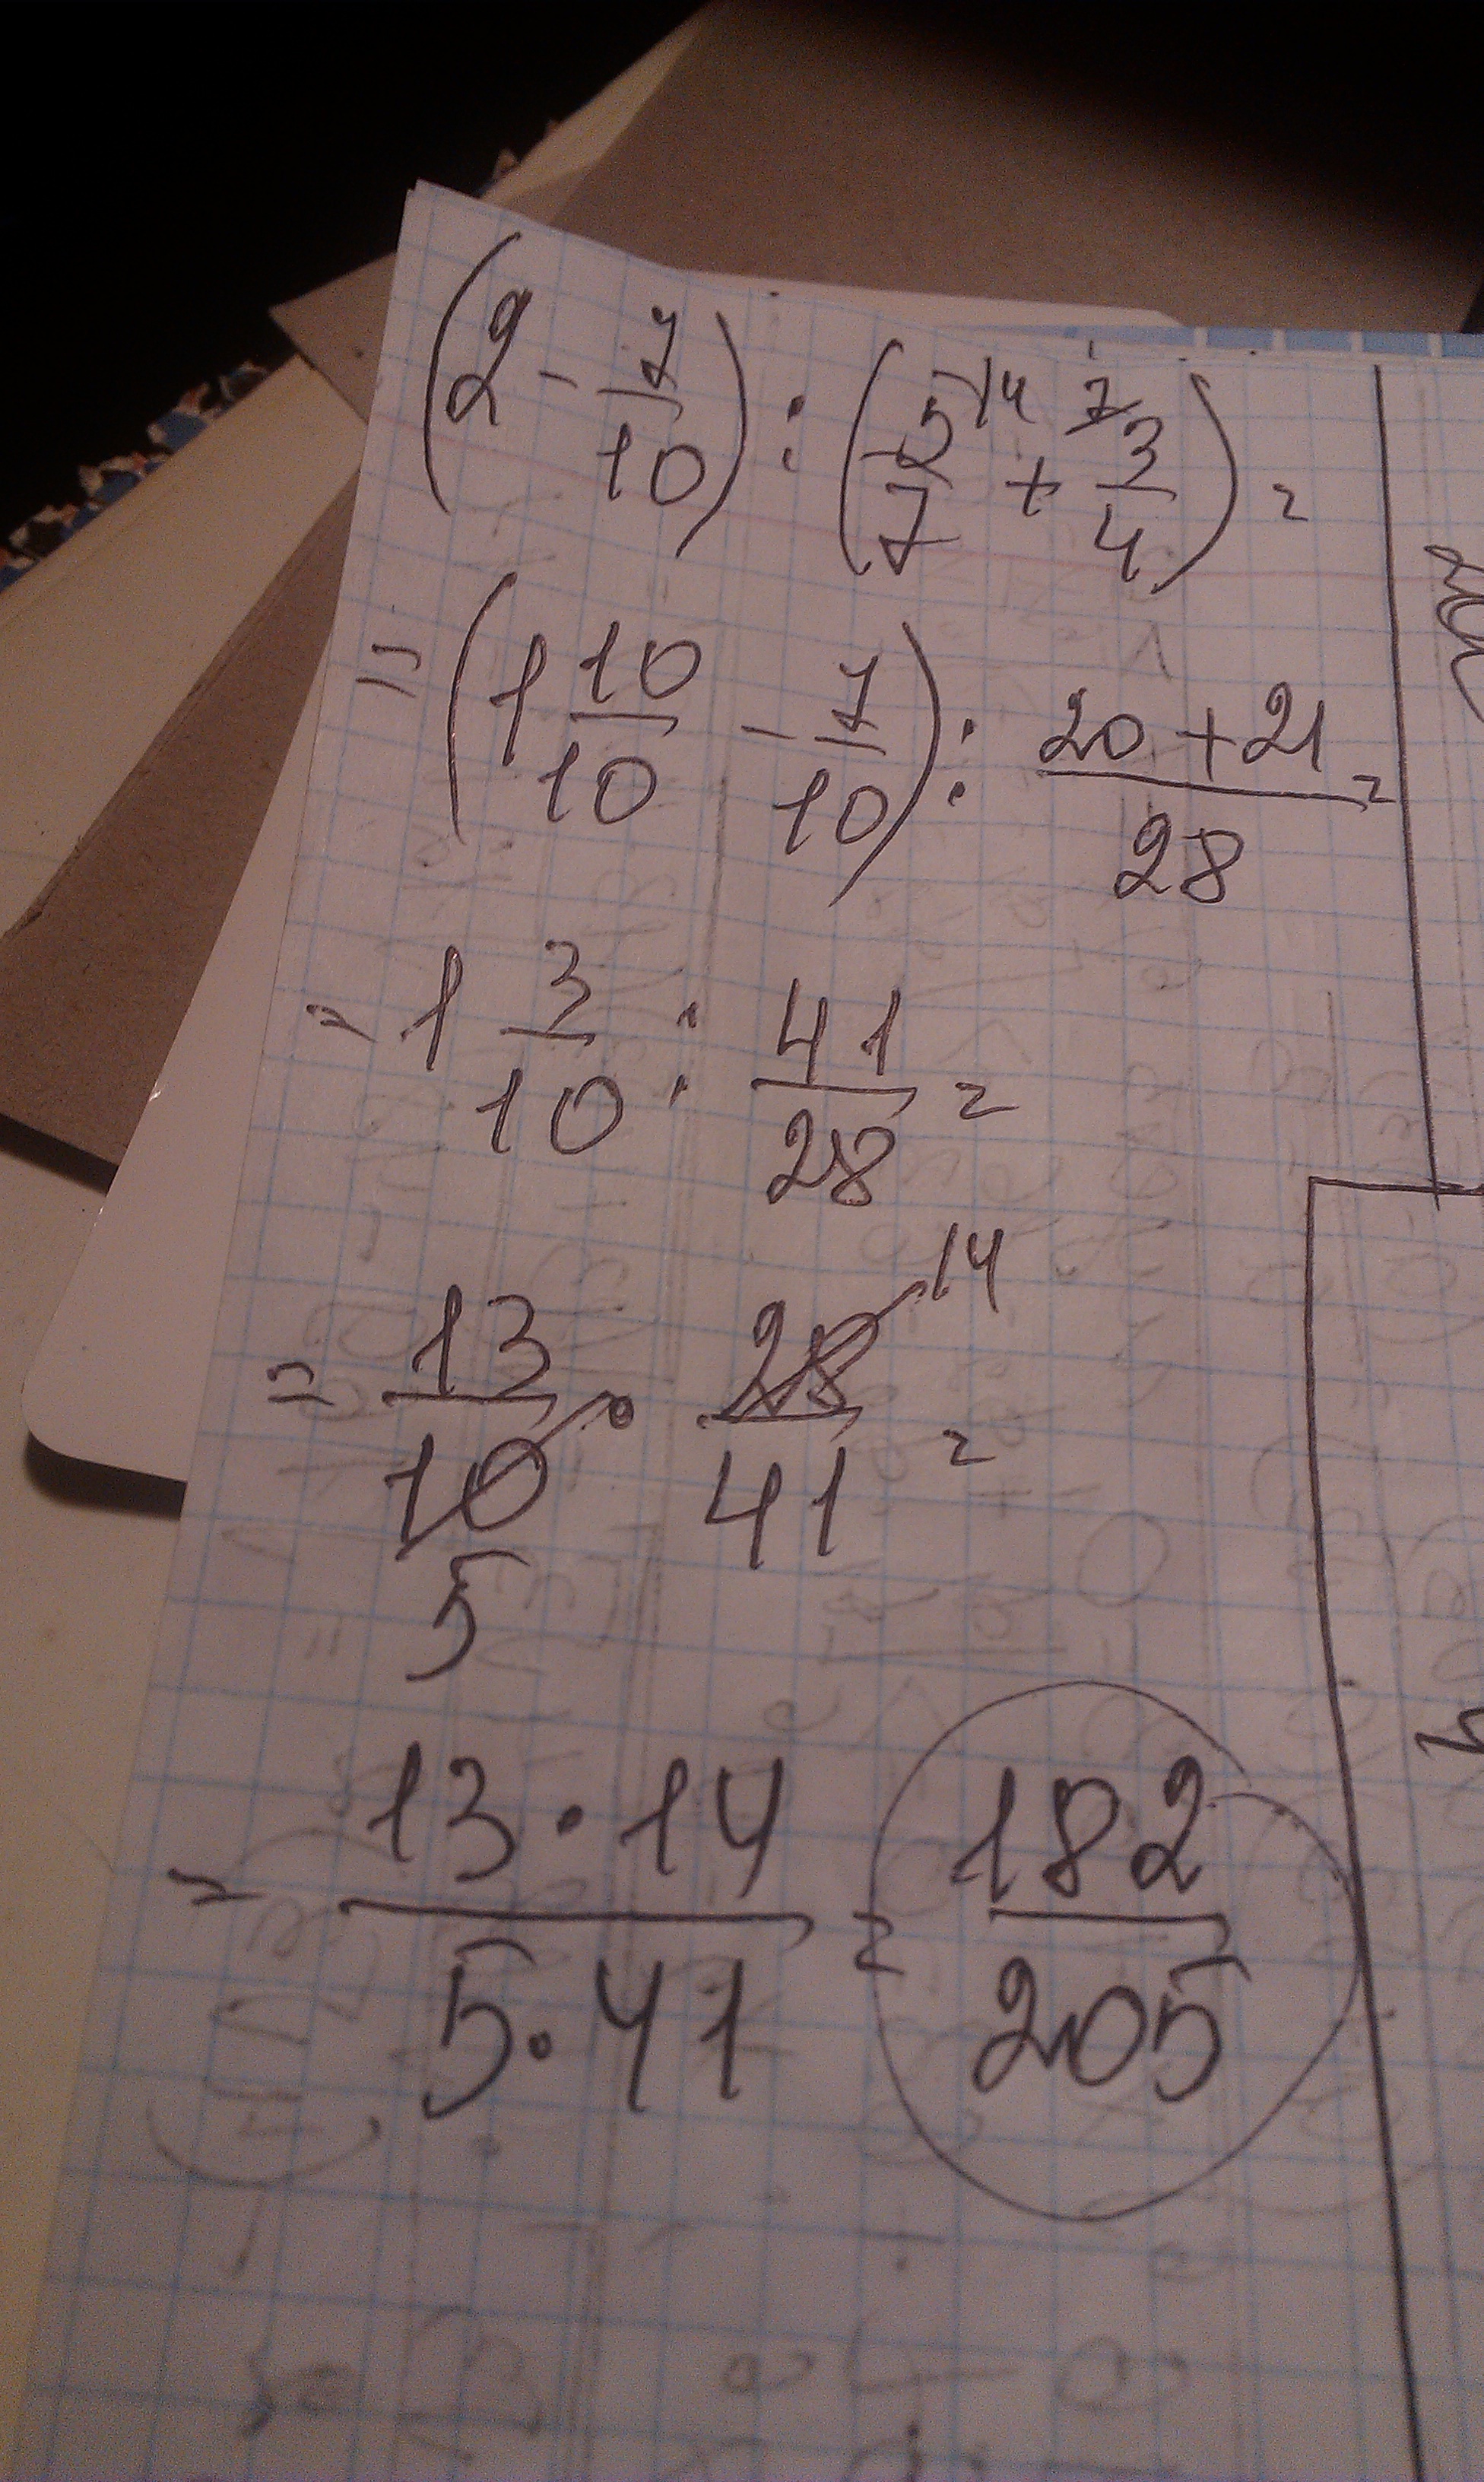 (2 - 7/10) : (5/7 + 3/4) =
= (1 10/10 - 7/10) : (20 + 21)/28 =
= 1 3/10 : 41/28 =
= 13/10 · 28/41 =
14
5
= (13 · 14)/(5 · 41) = 182/205